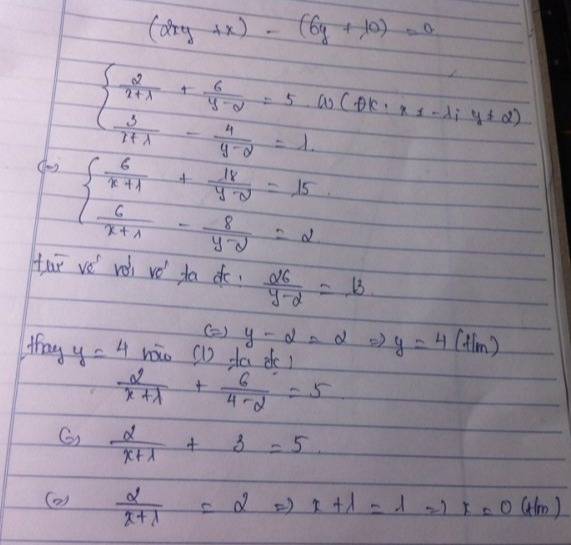 (2xy + x) - (6y + 10) = 0
{ 2/(x+1) + 6/(y-2) = 5 (1) (ĐK: x ≠ -1; y ≠ 2)
3/(x+1) - 4/(y-2) = 1.
(=) { 6/(x+1) + 18/(y-2) = 15.
6/(x+1) - 8/(y-2) = 2
trừ vế với vế ta đc: 26/(y-2) = 13
(=) y - 2 = 2 => y = 4 (tm)
thay y = 4 vào (1) ta đc:
2/(x+1) + 6/(4-2) = 5
(=) 2/(x+1) + 3 = 5.
(=) 2/(x+1) = 2 => x + 1 = 1 => x = 0 (tm)